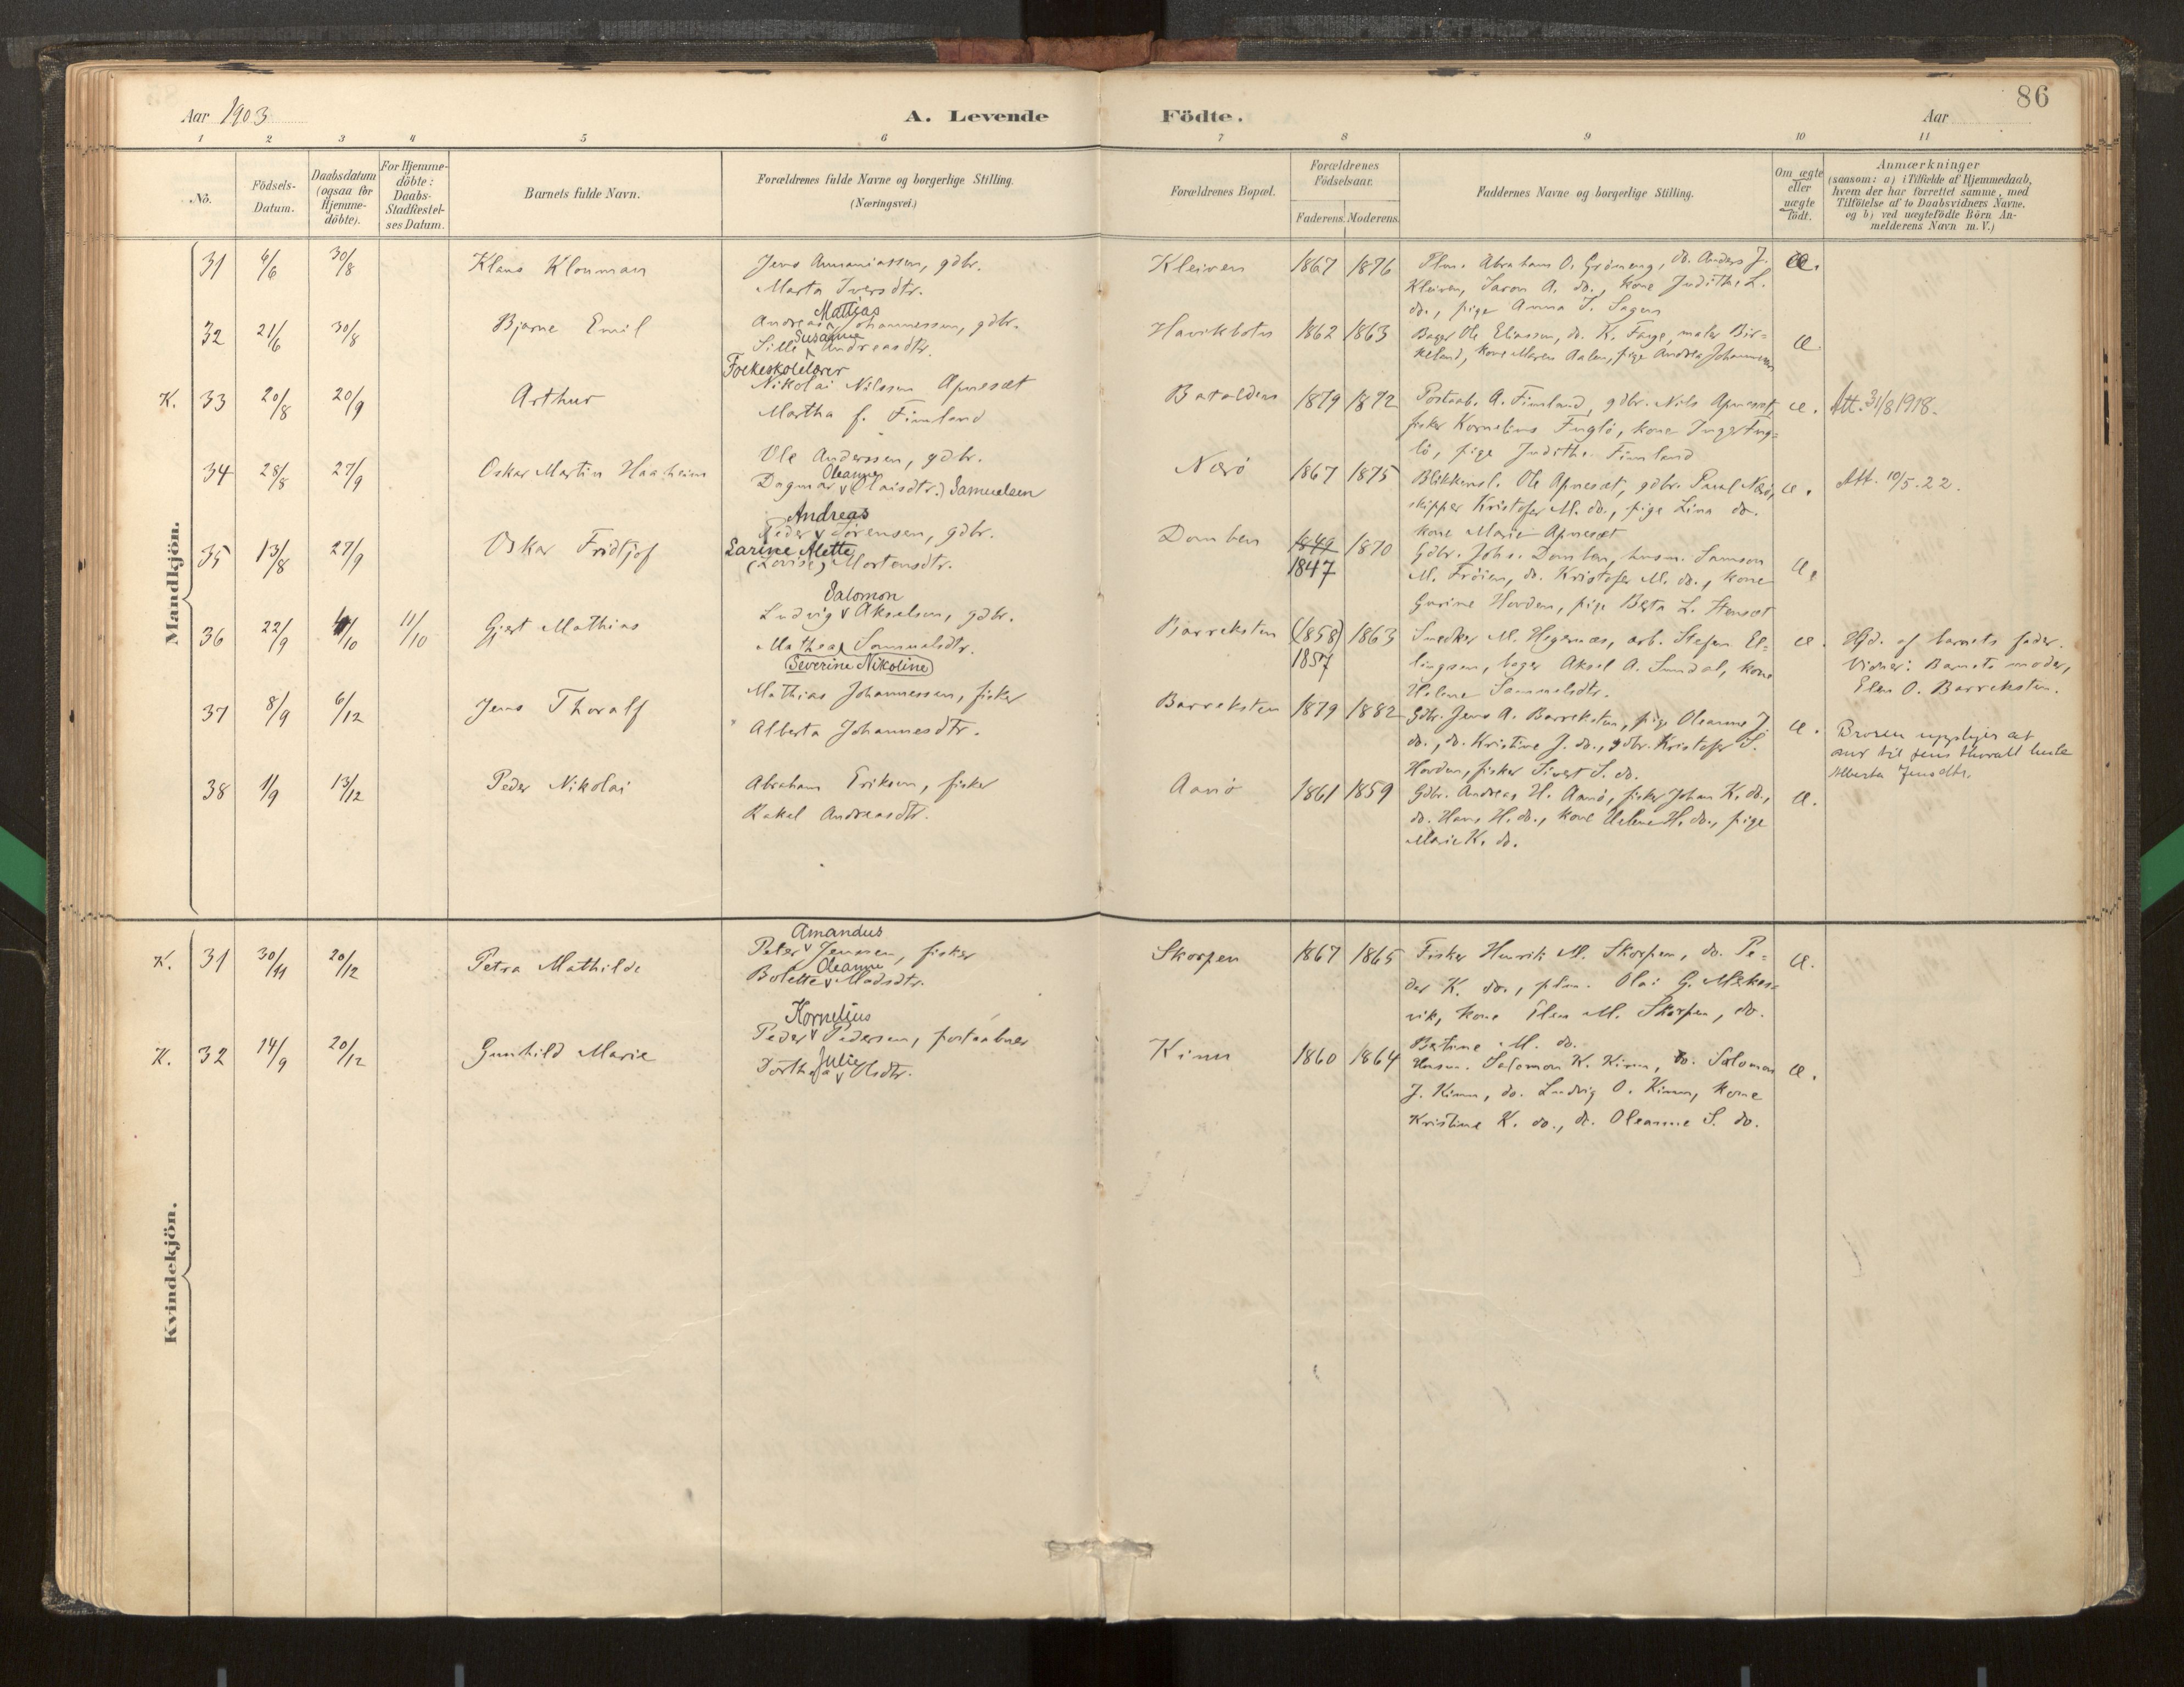 86
Aar 1903
A. Levende
Födte.
Aar
1 2 3 4 5 6 7 8 9 10 11
No.
Födsels-Datum.
Daabsdatum (ogsaa for Hjemme-döbte).
For Hjemme-döbte: Daabs-Stadfæstel-ses Datum.
Barnets fulde Navn.
Forældrenes fulde Navne og borgerlige Stilling.
(Næringsvei.)
Forældrenes Bopæl.
Forældrenes Födselsaar.
Faderens. Moderens.
Faddernes Navne og borgerlige Stilling.
Om ægte eller uægte födt.
Anmærkninger
(saasom: a) i Tilfælde af Hjemmedaab,
hvem der har forrettet samme, med
Tilföielse af to Daabsvidners Navne,
og b) ved uægtefödte Börn An-
melderens Navn m. V.)
Mandkjön.
31 6/6 30/8 Klaus Klouman
Jens Annaniassen, gdbr.
Marta Iversdtr.
Kleiven 1867 1876
Plm. Abraham O. Gröneng, do. Anders J.
Kleiven, Saron A. do., kone Judithe L.
do., pige Anna T. Sagen
æ.
32 21/6 30/8 Bjarne Emil
Mathias
Andreas Johannessen, gdbr.
Susanne
Sille Andreasdtr.
Havikbotn 1862 1863
Bager Ole Eliassen, do. K. Farge, maler Bir-
keland, kone Maren Aalen, pige Andrea Johannessen
æ.
K. 33 20/8 20/9 Arthur
Folkeskolelærer
Nikolai Nilssen Apneset
Martha f. Fimland
Batalden 1879 1872
Postaab. A. Fimland, gdbr. Nils Apneset,
fisker Kornelius Fuglö, kone Inger Fug-
lö, pige Judithe Fimland
æ.
Att. 31/8 1918.
34 28/8 27/9 Oskar Martin Haaheim
Ole Anderssen, gdbr.
Oleanna
Dagmar Olaisdtr.) Samuelsen
Nærö 1867 1875
Blikkensl. Ole Apneset, gdbr. Paul Nærö,
skipper Kristofer M. do., pige Lina do.
kone Marie Apneset
æ.
Att. 10/5.22.
35 13/8 27/9 Oskar Fridtjof
Andreas
Peder Sörensen, gdbr.
Sarine Alette
(Lovise) Mortensdtr.
Domben 1849 1870
1847
Gdbr. Johs. Domben, husm. Samson
M. Fröien, do. Kristofer M. do., kone
Gurine Hovden, pige Berta L. Stenset
æ.
36 22/9 4/10 11/10 Gjert Mathias
Salomon
Ludvig Akselsen, gdbr.
Mathea Samuelsdtr.
(Severine Nikoline)
Barreksten (1858) 1863
1857
Snedker M. Hegernæs, arb. Stefen El-
lingsen, bager Aksel A. Sundal, kone
Helene Sammelsdtr.
æ.
Hjd. af barnets fader.
Vidner: Barnets moder,
Elen O. Barreksten.
37 8/9 6/12 Jens Thoralf
Mathias Johannessen, fisker
Alberta Johannesdtr.
Barreksten 1879 1882
Gdbr. Jens A. Barreksten, pige Oleanne J.
do., do. Kristine J. do., gdbr. Kristofer S.
Hovden, fisker Sivert S. do.
æ.
Broren upplyser at
mor til Jens Thoralf hede
Alberta Jensdtr.
38 1/9 13/12 Peder Nikolai
Abraham Eriksen, fisker
Rakel Andreasdtr.
Aarö 1861 1859
Gdbr. Andreas H. Aarö, fisker Johan K. do.,
do. Hans H. do., kone Helene H. do., pige
Marie K. do.
æ.
Kvindekjön.
K. 31 30/11 20/12 Petra Mathilde
Amandus
Peter Jensen, fisker
Oleanne
Bolette Madsdtr.
Skorpen 1867 1865
Fisker Henrik M. Skorpen, do. Pe-
der K. do., plm. Olai G.
vik, kone Elen M. Skorpen, do.
Bertine M. do.
æ.
K. 32 14/9 20/12 Gunhild Marie
Kornelius
Peder Pedersen, postaabner
Julie
Dorthea Olsdtr.
Kinn 1860 1864
Husm. Salomon K. Kinn, do. Salomon
J. Kinn, do. Ludvig O. Kinn, kone
Kristine K. do., do. Oleanne S. do.
æ.